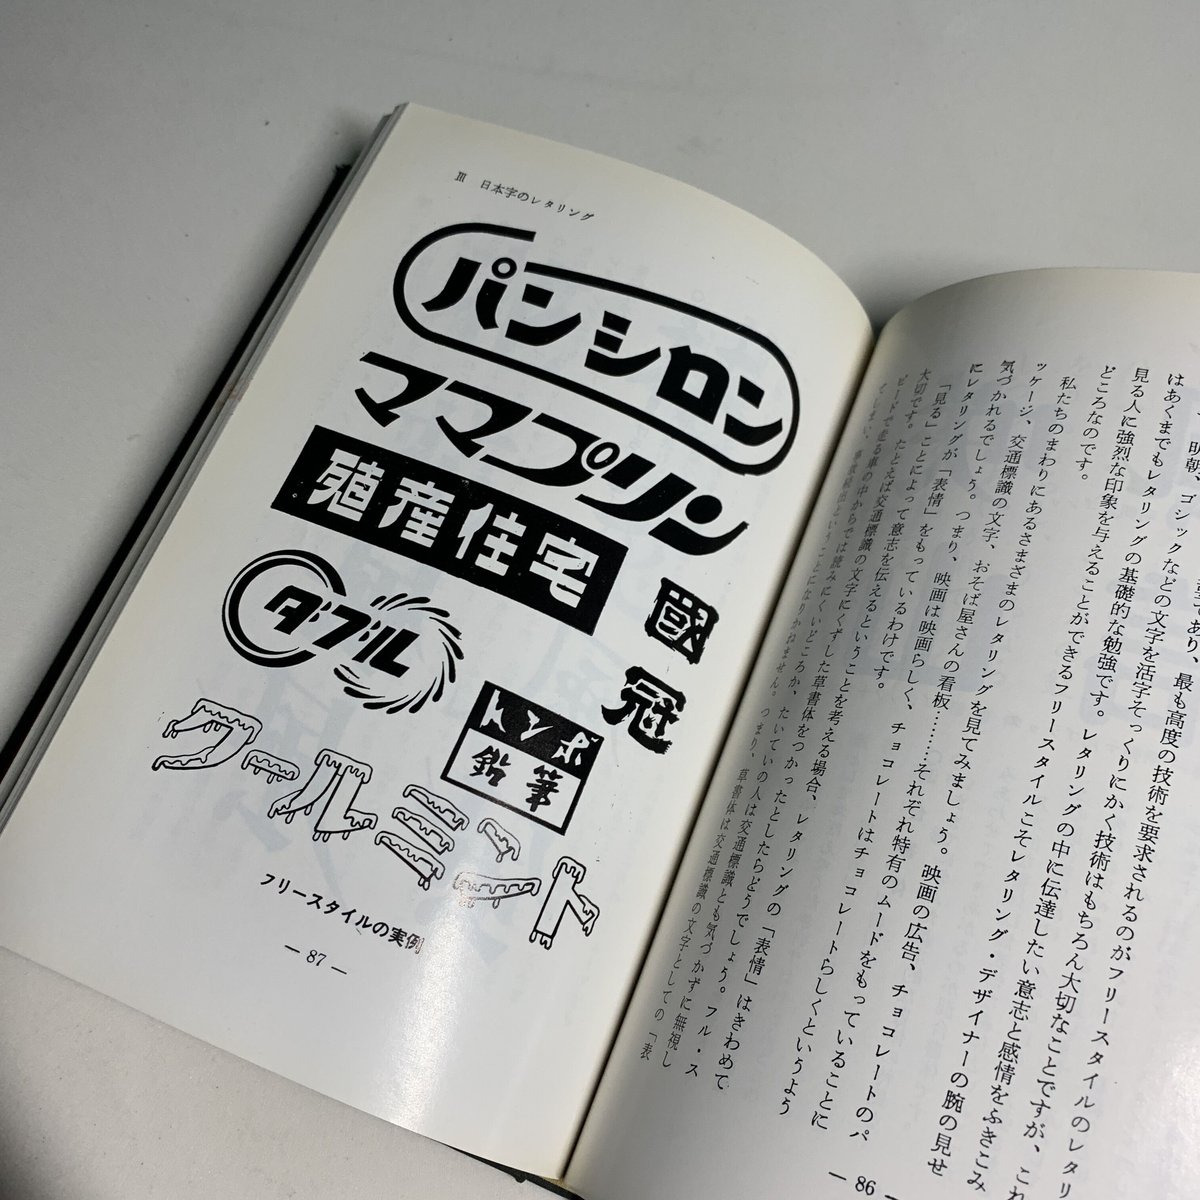 あり、最も高度の技術を要求されるのがフリースタイルのレタリ
明朝、ゴシックなどの文字を活字そっくりにかく技術はもちろん大切なことですが、これ
はあくまでもレタリングの基礎的な勉強です。レタリングの中に伝達したい意志と感情をふきこみ
見る人に強烈な印象を与えることができるフリースタイルこそレタリング・デザイナーの腕の見せ
どころなのです。
私たちのまわりにあるさまざまのレタリングを見てみましょう。映画の広告、チョコレートのパ
ッケージ、交通標識の文字、おそば屋さんの看板………それぞれ特有のムードをもっていることに
気づかれるでしょう。つまり、映画は映画らしく、チョコレートはチョコレートらしくというよう
にレタリングが「表情」をもっているわけです。
「見る」ことによって意志を伝えるということを考える場合、レタリングの「表情」はきわめて
大切です。たとえば交通標識の文字にくずした草書体をつかったとしたらどうでしょう。フル・ス
ピードで走る車の中からでは読みにくいどころか、たいていの人は交通標識とも気づかずに無視し
てしまい、事故続出ということになりかねません。つまり、草書体は交通標識の文字としての「表
— 86 —
Ⅲ 日本字のレタリング
パンシロン
ママプリン
殖産住宅
國冠
ダブル
トンボ
鉛筆
クールミント
フリースタイルの実例
— 87 —